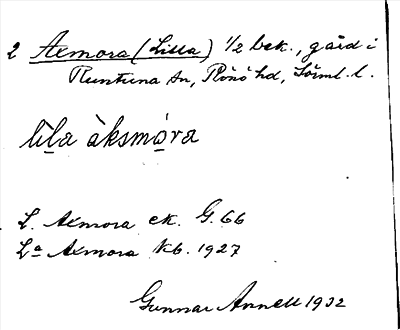 2 Axmora (Lilla) 1/2 bsk., gård i
Runtuna sn, Rönö hd, Sörml. l.
lìl̠a àksmo̠ra
L. Axmora ek. G. 66
Lª Axmora kb. 1927
Gunnar Annell 1932